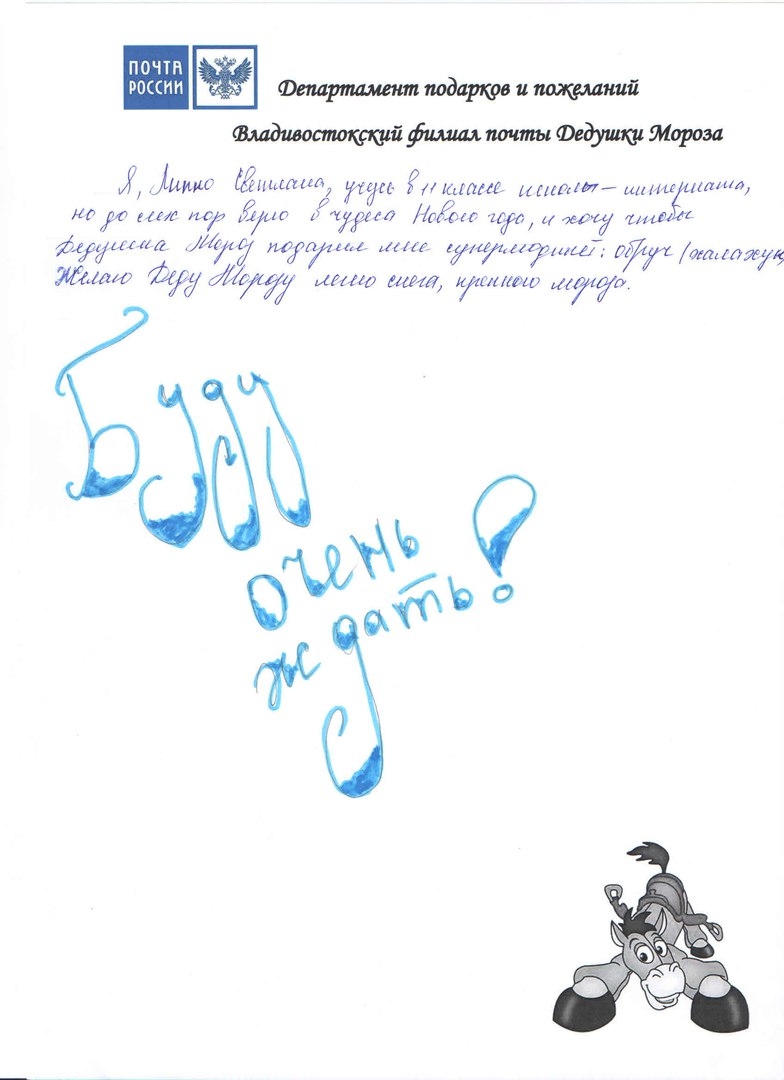 ПОЧТА
РОССИИ
Департамент подарков и пожеланий
Владивостокский филиал почты Дедушки Мороза
Я, Липко Светлана, учусь в 11 классе школы-интерната,
но до сих пор верю в чудеса Нового года, и хочу чтобы
Дедушка Мороз подарил мне супермодный обруч (халахуп
Желаю Деду Морозу много снега, крепкого мороза.
Буду
очень
ждать!